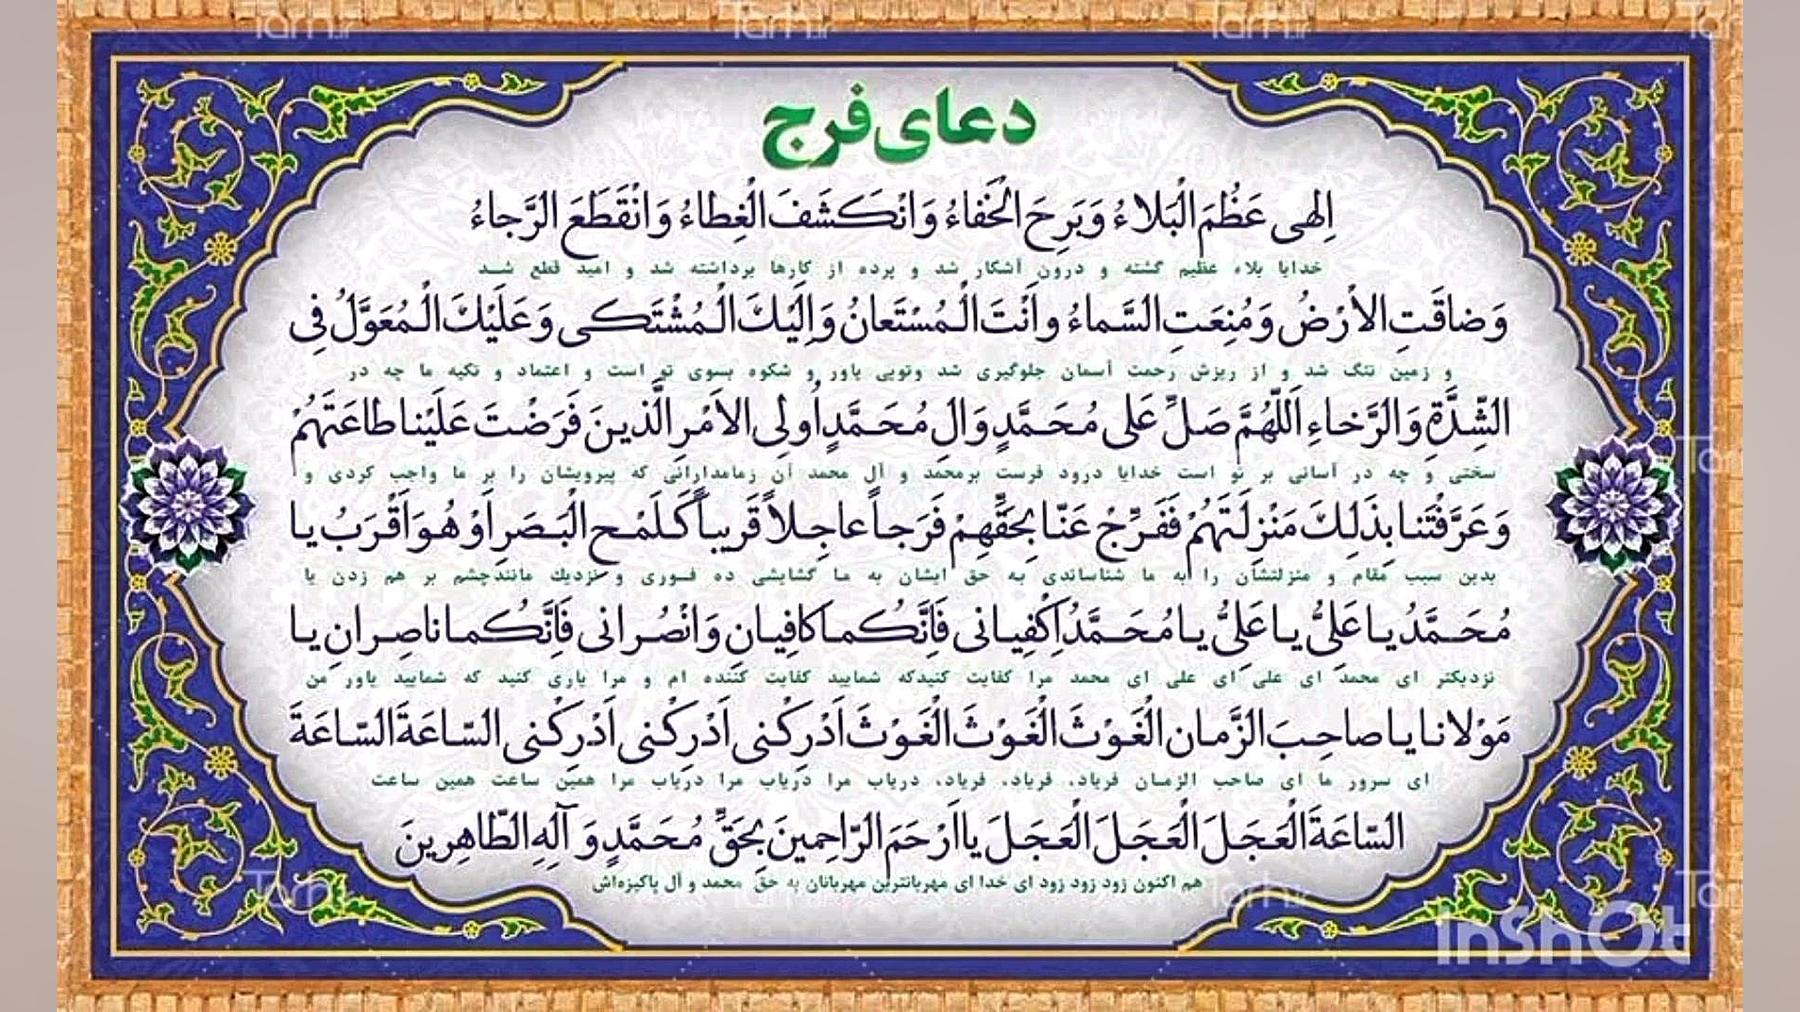 دعای فرج
اِلهی عَظُمَ الْبَلاءُ وَبَرِحَ الْخَفاءُ وَانْکَشَفَ الْغِطاءُ وَانْقَطَعَ الرَّجاءُ
خدایا بلاء عظیم گشته و درون آشکار شد و پرده از کارها برداشته شد و امید قطع شد
وَضاقَتِ الاَْرْضُ وَمُنِعَتِ السَّماءُ واَنْتَ الْمُسْتَعانُ وَاِلَیْكَ الْمُشْتَکی وَعَلَیْكَ الْمُعَوَّلُ فِی
و زمین تنگ شد و از ریزش رحمت آسمان جلوگیری شد وتویی یاور و شکوه بسوی تو است و اعتماد و تکیه ما چه در
الشِّدَّةِ وَالرَّخاءِ اَللّهُمَّ صَلِّ عَلی مُحَمَّدٍ وَالِ مُحَمَّدٍ اُولِی الاَمْرِ الَّذینَ فَرَضْتَ عَلَیْنا طاعَتَهُمْ
سختی و چه در آسانی بر تو است خدایا درود فرست برمحمد و آل محمد آن زمامدارانی که پیرویشان را بر ما واجب کردی و
وَعَرَّفْتَنا بِذلِكَ مَنْزِلَتَهُمْ فَفَرِّجْ عَنّا بِحَقِّهِمْ فَرَجاً عاجِلاً قَریباً کَلَمْحِ الْبَصَرِ اَوْ هُوَ اَقْرَبُ یا
بدین سبب مقام و منزلتشان را به ما شناساندی به حق ایشان به ما گشایشی ده فوری و نزدیك مانندچشم بر هم زدن یا
مُحَمَّدُ یا عَلِیُّ یا عَلِیُّ یا مُحَمَّدُ اِکْفِیانی فَاِنَّکُما کافِیانِ وَانْصُرانی فَاِنَّکُما ناصِرانِ یا
نزدیکتر ای محمد ای علی ای علی ای محمد مرا کفایت کنیدکه شمایید کفایت کننده ام و مرا یاری کنید که شمایید یاور من
مَوْلانا یا صاحِبَ الزَّمانِ الْغَوْثَ الْغَوْثَ الْغَوْثَ اَدْرِکْنی اَدْرِکْنی اَدْرِکْنی السّاعَةَ السّاعَةَ
ای سرور ما ای صاحب الزمان فریاد، فریاد، فریاد، دریاب مرا دریاب مرا دریاب مرا همین ساعت همین ساعت
السّاعَةَ الْعَجَلَ الْعَجَلَ الْعَجَلَ یا اَرْحَمَ الرّاحِمینَ بِحَقِّ مُحَمَّدٍ وَ آلِهِ الطّاهِرینَ
هم اکنون زود زود زود ای خدا ای مهربانترین مهربانان به حق محمد و آل پاکیزه‌اش
InShOt